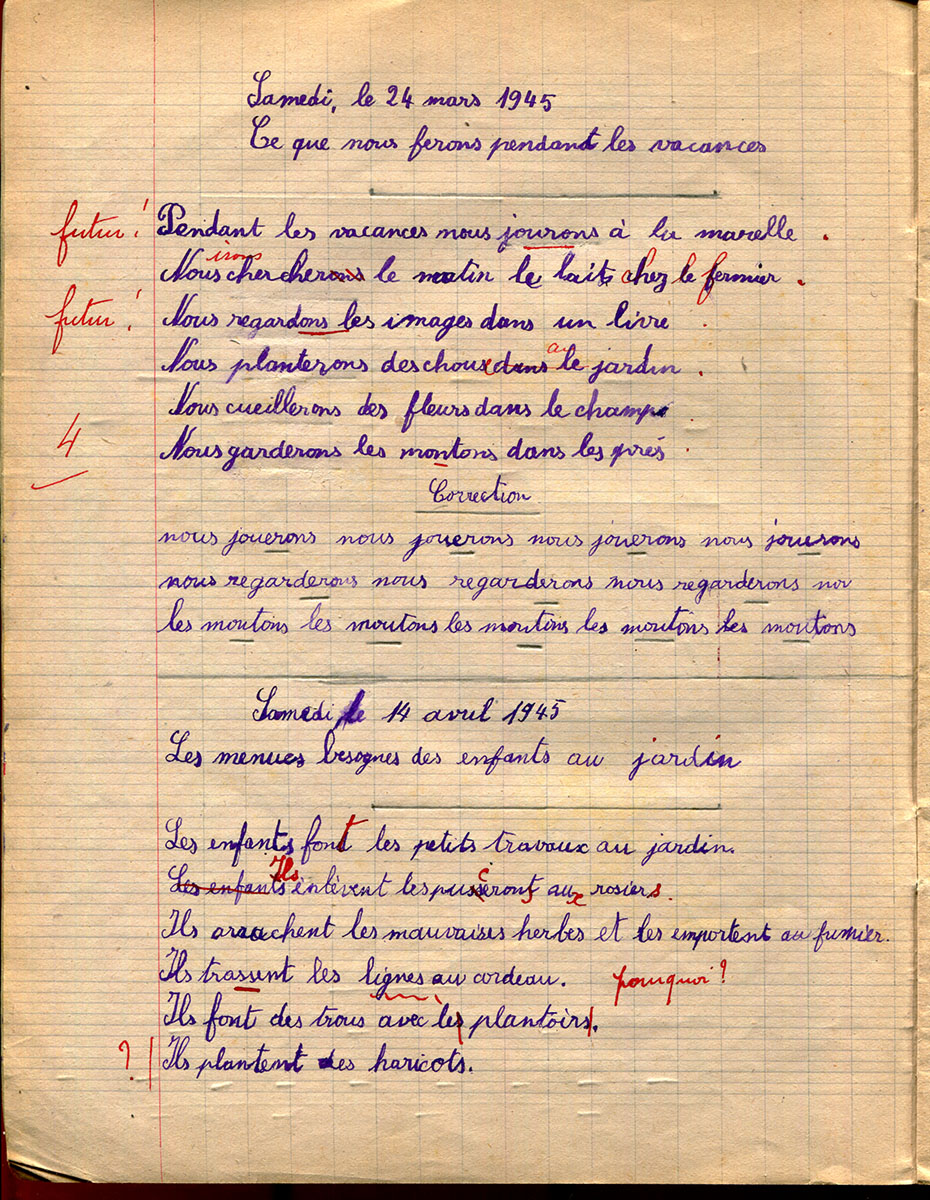 Samedi, le 24 mars 1945
Ce que nous ferons pendant les vacances
futur! Pendant les vacances nous jourons à la marelle .
irons
Nous chercherons le matin le lait chez le fermier .
futur! Nous regardons les images dans un livre .
au
Nous planterons des choux dans le jardin .
Nous cueillerons des fleurs dans le champ
4 Nous garderons les montons dans les prés .
Correction
nous jouerons nous jouerons nous jouerons nous jouerons
nous regarderons nous regarderons nous regarderons nou
les moutons les moutons les moutons les moutons les moutons
Samedi, le 14 avril 1945
Les menues besognes des enfants au jardin
Les enfants font les petits travaux au jardin.
Ils
Les enfants enlèvent les puserons aux rosiers.
Ils arrachent les mauvaises herbes et les emportent au fumier.
Ils trassent les lignes au cordeau. pourquoi?
Ils font des trous avec les plantoirs.
? Ils plantent des haricots.